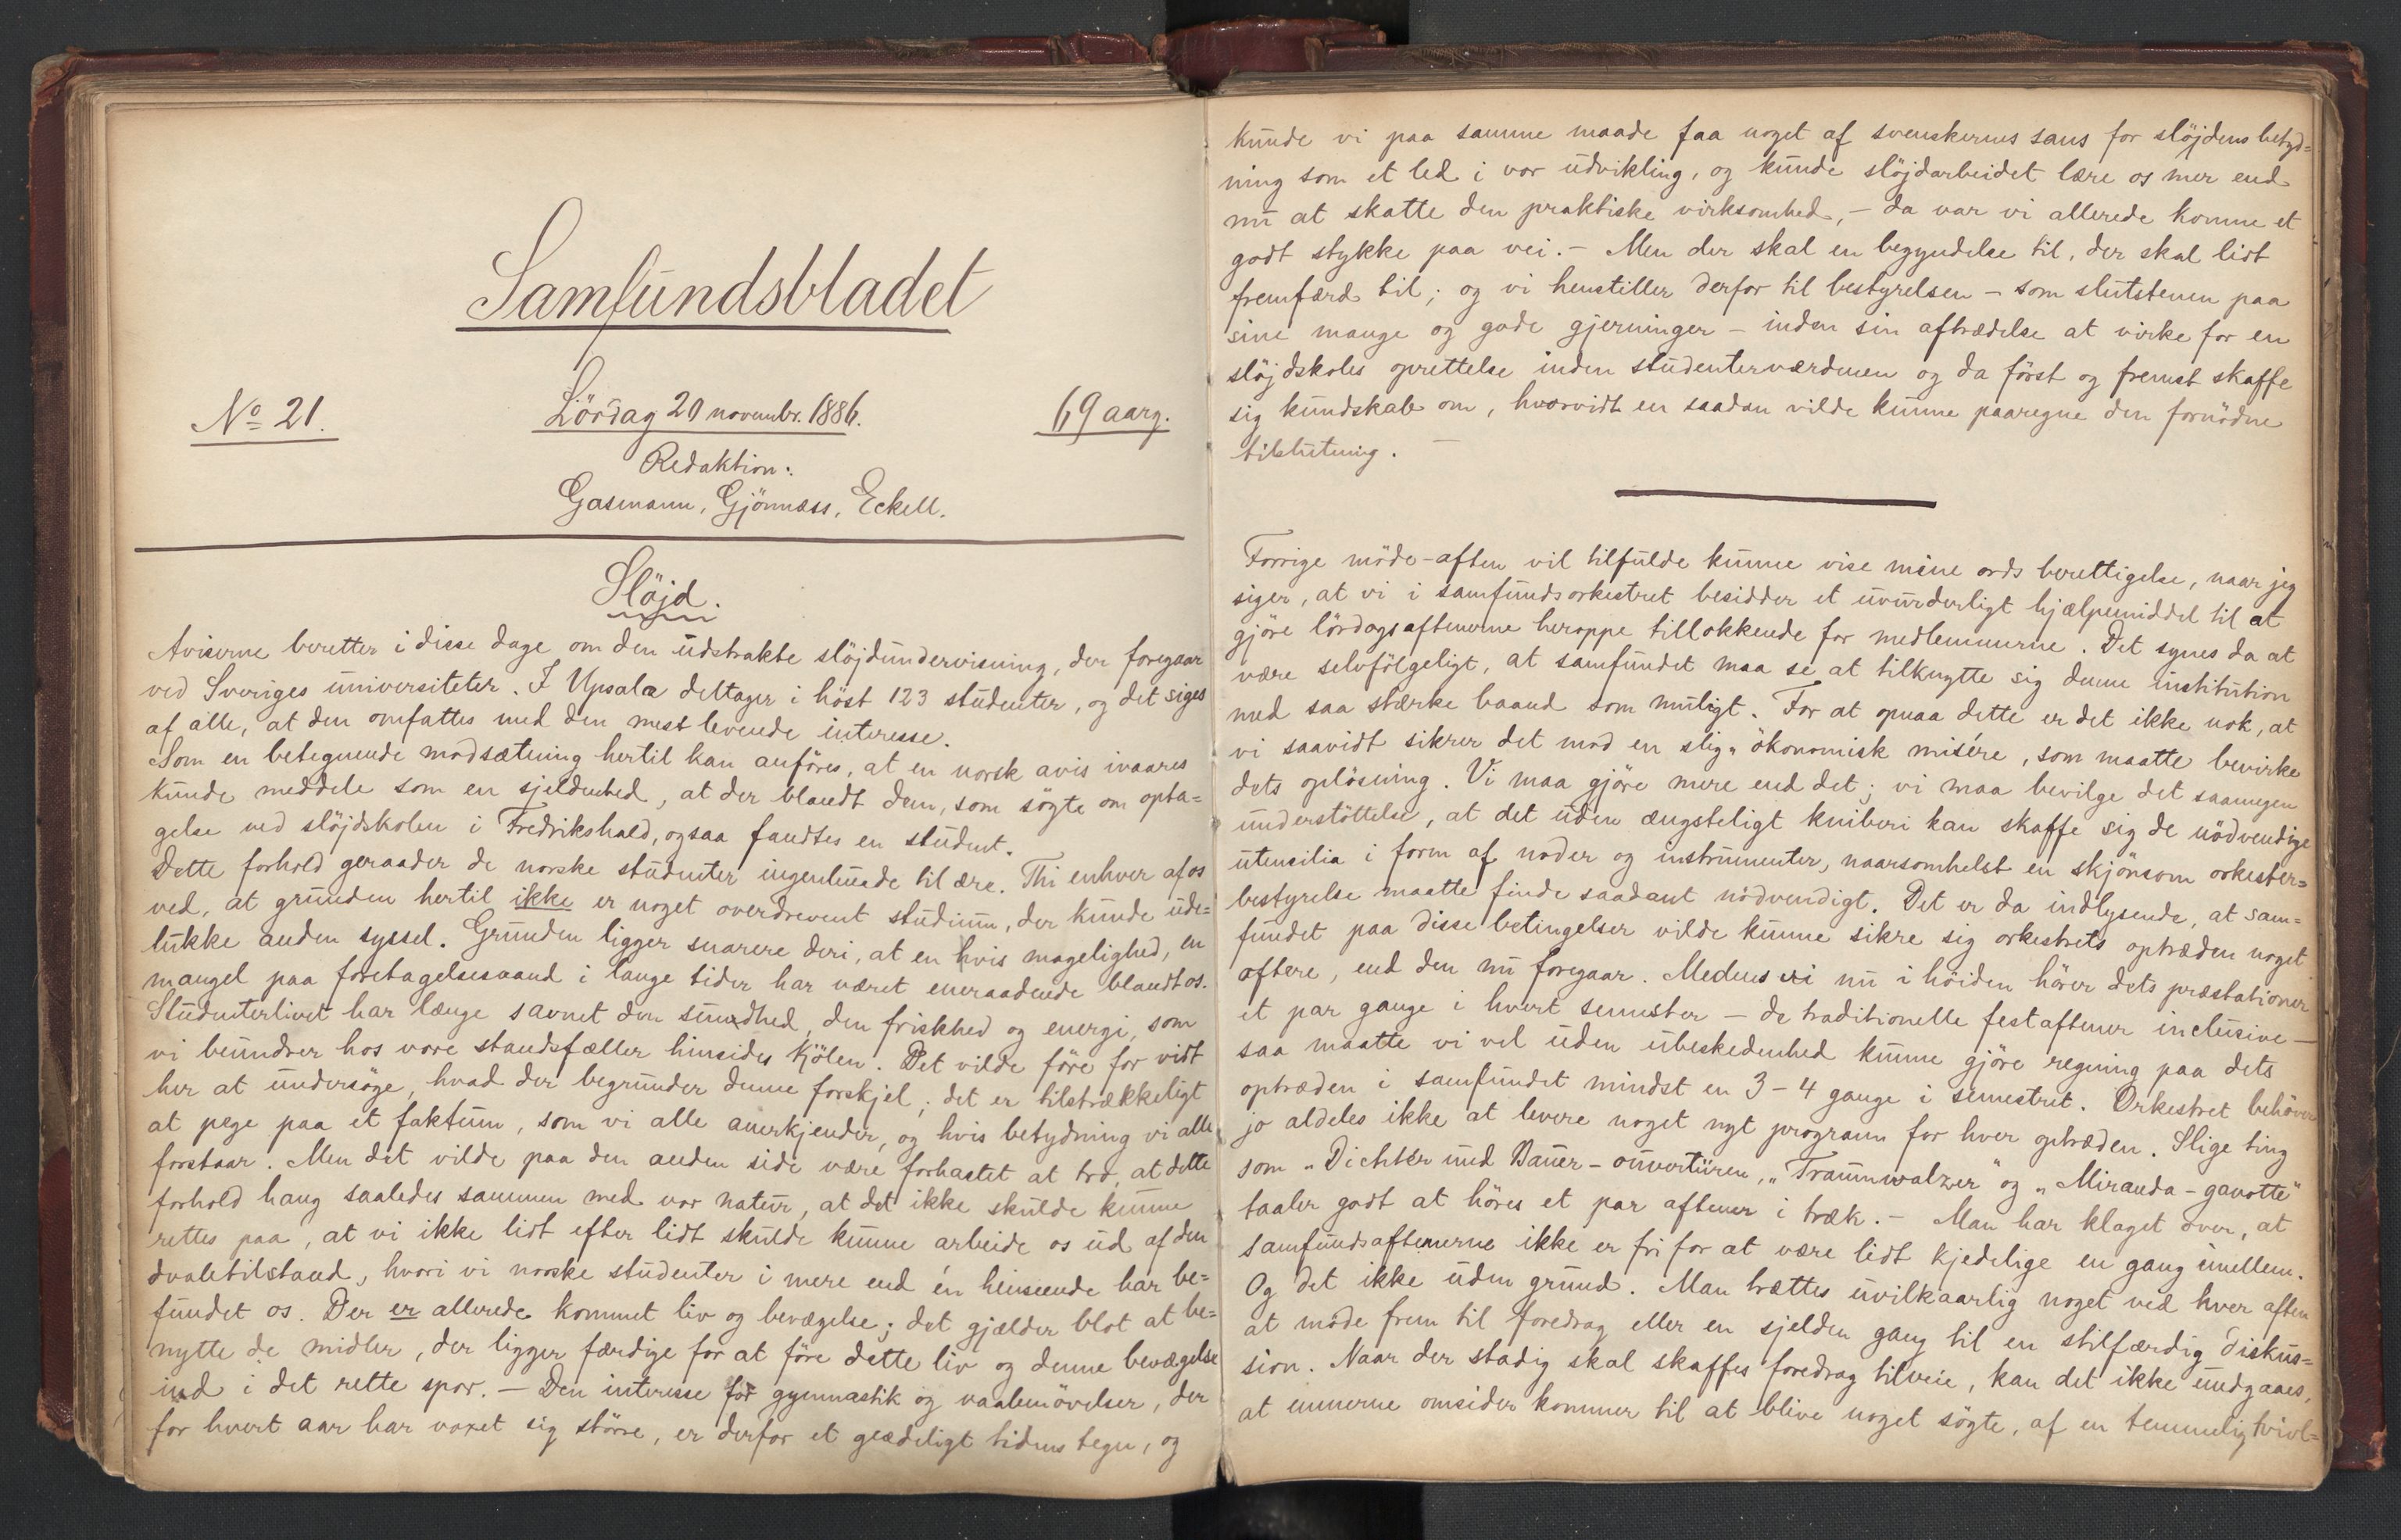 Samfundsbladet
No 21.
Lördag 20 novembr. 1886.
69 aarg.
Redaktion:
Gasmann, Gjönnæss, Eckell.
Slöjd.
Aviserne beretter i disse dage om den udstrakte slöjdundervisning, der foregaar
ved Sveriges universiteter. I Upsala deltager i höst 123 studenter, og det siges
af alle, at den omfattes med den mest levende interesse.
Som en betegnende modsætning hertil kan anföres, at en norsk avis ivaares
kunde meddele som en sjeldenhed, at der blandt dem, som sögte om opta=
gelse ved slöjdskolen i Fredrikshald, ogsaa fandtes en student.
Dette forhold geraader de norske studenter ingenlunde til ære. Thi enhver af os
ved, at grunden hertil ikke er noget overdrevent studium, der kunde ude=
lukke anden syssel. Grunden ligger snarere deri, at en hvis magelighed, en
mangel paa foretagelsesaand i lange tider har været eneraadende blandt os.
Studenterlivet har længe savnet den sundhed, den friskhed og energi, som
vi beundrer hos vore standsfæller hinsides Kjölen. Det vilde före for vidt
her at undersöge, hvad der begrunder denne forskjel; det er tilstrækkeligt
at pege paa et faktum, som vi alle anerkjender, og hvis betydning vi alle
forstaar. Men det vilde paa den anden side være forhastet at tro, at dette
forhold hang saaledes sammen med vor natur, at det ikke skulde kunne
rettes paa, at vi ikke lidt efter lidt skulde kunne arbeide os ud af den
dvaletilstand, hvori vi norske studenter i mere end én henseende har be=
fundet os. Der er allerede kommet liv og bevægelse; det gjælder blot at be=
nytte de midler, der ligger færdige for at före dette liv og denne bevægelse
ind i det rette spor. — Den interesse for gymnastik og vaabenövelser, der
for hvert aar har voxet sig större, er derfor et glædeligt tidens tegn, og
kunde vi paa samme maade faa noget af svenskernes sans for slöjdens betyd=
ning som et led i vor udvikling, og kunde slöjdarbeidet lære os mer end
nu at skatte den praktiske virksomhed, — da var vi allerede komne et
godt stykke paa vei. — Men der skal en begyndelse til, der skal lidt
fremfærd til; og vi henstiller derfor til bestyrelsen — som slutstenen paa
sine mange og gode gjerninger — inden sin aftrædelse at virke for en
slöjdskoles oprettelse inden studenterverdenen og da först og fremst skaffe
sig kundskab om, hvorvidt en saadan vilde kunne paaregne den fornödne
tilslutning. —
Forrige möde-aften vil tilfulde kunne vise mine ords berettigelse, naar jeg
siger, at vi i samfundsorkestret besidder et uvurderligt hjælpemiddel til at
gjöre lördagsaftenerne heroppe tillokkende for medlemmerne. Det synes da at
være selvfölgeligt, at samfundet maa se at tilknytte sig denne institution
med saa stærke baand som muligt. For at opnaa dette er det ikke nok, at
vi saavidt sikrer det mod en slig økonomisk misére, som maatte bevirke
dets oplösning. Vi maa gjöre mere end det; vi maa bevilge det saamegen
understöttelse, at det uden ængsteligt kniberi kan skaffe sig de nödvendige
utensilia i form af noder og instrumenter, naarsomhelst en skjönsom orkester=
bestyrelse maatte finde saadant nödvendigt. Det er da indlysende, at sam=
fundet paa disse betingelser vilde kunne sikre sig orkestrets optræden noget
oftere, end den nu foregaar. Medens vi nu i höiden hörer dets præstationer
et par gange i hvert semester — de traditionelle festaftener inclusive —
saa maatte vi vel uden ubeskedenhed kunne gjöre regning paa dets
optræden i samfundet mindst en 3 - 4 gange i semestret. Orkestret behöver
jo aldeles ikke at levere noget nyt program for hver optræden. Slige ting
som „Dichter und Bauer - ouvertüren, „Traumwalzer" og „Miranda - gavotte"
taaler godt at höres et par aftener i træk. — Man har klaget over, at
samfundsaftenerne ikke er fri for at være lidt kjedelige en gang imellem.
Og det ikke uden grund. Man trættes uvilkaarlig noget ved hver aften
at möde frem til foredrag eller en sjelden gang til en stilfærdig diskus=
sion. Naar der stadig skal skaffes foredrag tilveie, kan det ikke undgaaes,
at emnerne omsider kommer til at blive noget sögte, af en temmelig tvivl=